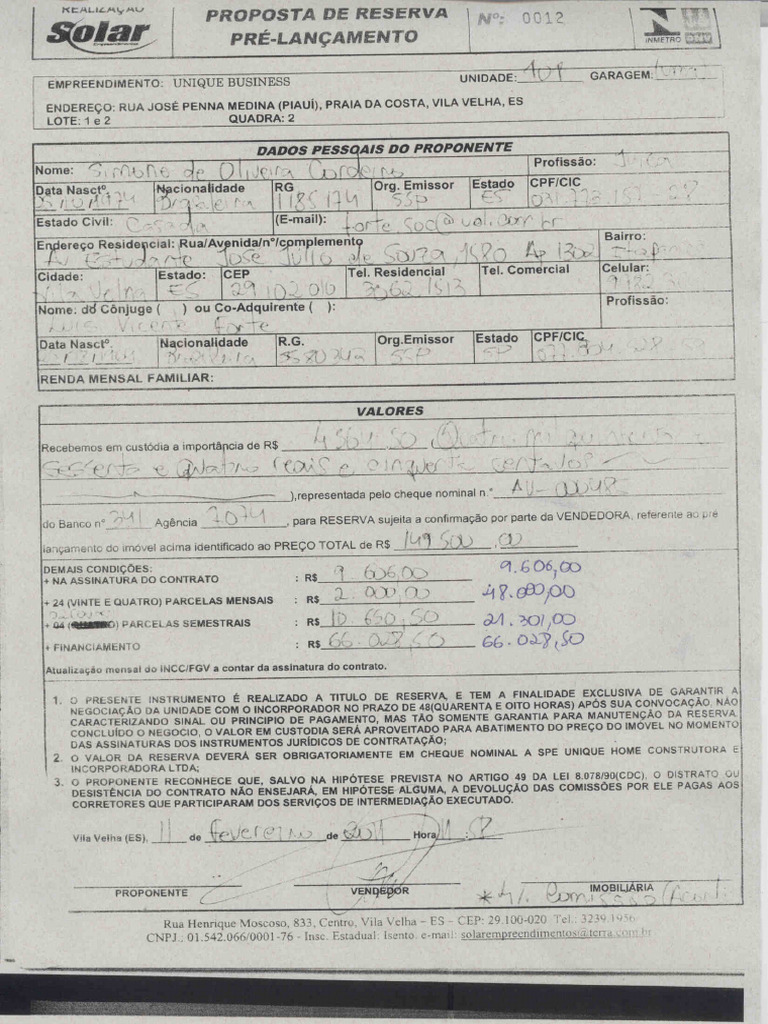 REALIZAÇÃO
Solar
Empreendimentos
PROPOSTA DE RESERVA
PRÉ-LANÇAMENTO
Nº: 0012
INMETRO
EMPREENDIMENTO: UNIQUE BUSINESS UNIDADE: GARAGEM:
ENDEREÇO: RUA JOSÉ PENNA MEDINA (PIAUÍ), PRAIA DA COSTA, VILA VELHA, ES
LOTE: 1 e 2 QUADRA: 2
DADOS PESSOAIS DO PROPONENTE
Nome: Simone de Oliveira Cordeiro Profissão:
Data Nasctº. Nacionalidade RG Org. Emissor Estado CPF/CIC
Brasileira 1185174 SSP ES
Estado Civil: Casada (E-mail): forte.soc@uol.com.br
Endereço Residencial: Rua/Avenida/nº/complemento Bairro:
Av Estudante José Júlio de Souza, 1580 Ap 1302
Cidade: Estado: CEP Tel. Residencial Tel. Comercial Celular:
Vila Velha ES 29.102.010 3062.1513
Nome: do Cônjuge ( ) ou Co-Adquirente ( ): Profissão:
Luis Vicente Forte
Data Nasctº. Nacionalidade R.G. Org.Emissor Estado CPF/CIC
Brasileira SSP SP
RENDA MENSAL FAMILIAR:
VALORES
Recebemos em custódia a importância de R$ 4564,50 (Quatro mil quinhentos e
sessenta e quatro reais e cinquenta centavos
),representada pelo cheque nominal n.º
do Banco nº 341 Agência 7074, para RESERVA sujeita a confirmação por parte da VENDEDORA, referente ao pré
lançamento do imóvel acima identificado ao PREÇO TOTAL de R$ 149.500,00
DEMAIS CONDIÇÕES:
+ NA ASSINATURA DO CONTRATO : R$ 9.606,00 9.606,00
+ 24 (VINTE E QUATRO) PARCELAS MENSAIS : R$ 2.000,00 48.000,00
+ 04 PARCELAS SEMESTRAIS : R$ 10.650,50 21.301,00
+ FINANCIAMENTO : R$ 66.028,50 66.028,50
Atualização mensal do INCC/FGV a contar da assinatura do contrato.
1. O PRESENTE INSTRUMENTO É REALIZADO A TITULO DE RESERVA, E TEM A FINALIDADE EXCLUSIVA DE GARANTIR A
NEGOCIAÇÃO DA UNIDADE COM O INCORPORADOR NO PRAZO DE 48(QUARENTA E OITO HORAS) APÓS SUA CONVOCAÇÃO, NÃO
CARACTERIZANDO SINAL OU PRINCIPIO DE PAGAMENTO, MAS TÃO SOMENTE GARANTIA PARA MANUTENÇÃO DA RESERVA.
CONCLUÍDO O NEGOCIO, O VALOR EM CUSTODIA SERÁ APROVEITADO PARA ABATIMENTO DO PREÇO DO IMÓVEL NO MOMENTO
DAS ASSINATURAS DOS INSTRUMENTOS JURÍDICOS DE CONTRATAÇÃO;
2. O VALOR DA RESERVA DEVERÁ SER OBRIGATORIAMENTE EM CHEQUE NOMINAL A SPE UNIQUE HOME CONSTRUTORA E
INCORPORADORA LTDA;
3. O PROPONENTE RECONHECE QUE, SALVO NA HIPÓTESE PREVISTA NO ARTIGO 49 DA LEI 8.078/90(CDC), O DISTRATO OU
DESISTÊNCIA DO CONTRATO NÃO ENSEJARÁ, EM HIPÓTESE ALGUMA, A DEVOLUÇÃO DAS COMISSÕES POR ELE PAGAS AOS
CORRETORES QUE PARTICIPARAM DOS SERVIÇOS DE INTERMEDIAÇÃO EXECUTADO.
Vila Velha (ES), 11 de fevereiro de 2011 Hora
PROPONENTE VENDEDOR IMOBILIÁRIA
* 4% Comissão
Rua Henrique Moscoso, 833, Centro, Vila Velha – ES – CEP: 29.100-020 Tel.: 3239.1956
CNPJ.: 01.542.066/0001-76 - Insc. Estadual: Isento. e-mail: solarempreendimentos@terra.com.br